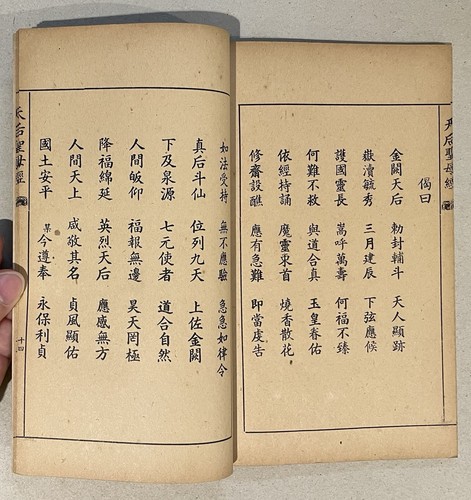 天后聖母經
偈曰
金闕天后 勅封輔斗 天人顯跡
嶽瀆毓秀 三月建辰 下弦應候
護國靈長 嵩呼萬壽 何福不臻
何難不救 與道合真 玉皇眷佑
依經持誦 魔靈束首 燒香散花
修齋設醮 應有急難 即當虔告
如法受持 無不應驗 急急如律令
真后斗仙 位列九天 上佐金闕
下及泉源 七元使者 道合自然
人間皈仰 福報無邊 昊天罔極
降福綿延 英烈天后 應感無方
人間天上 咸敬其名 貞風顯佑
國土安平 某今遵奉 永保利貞
天后聖母經 十四